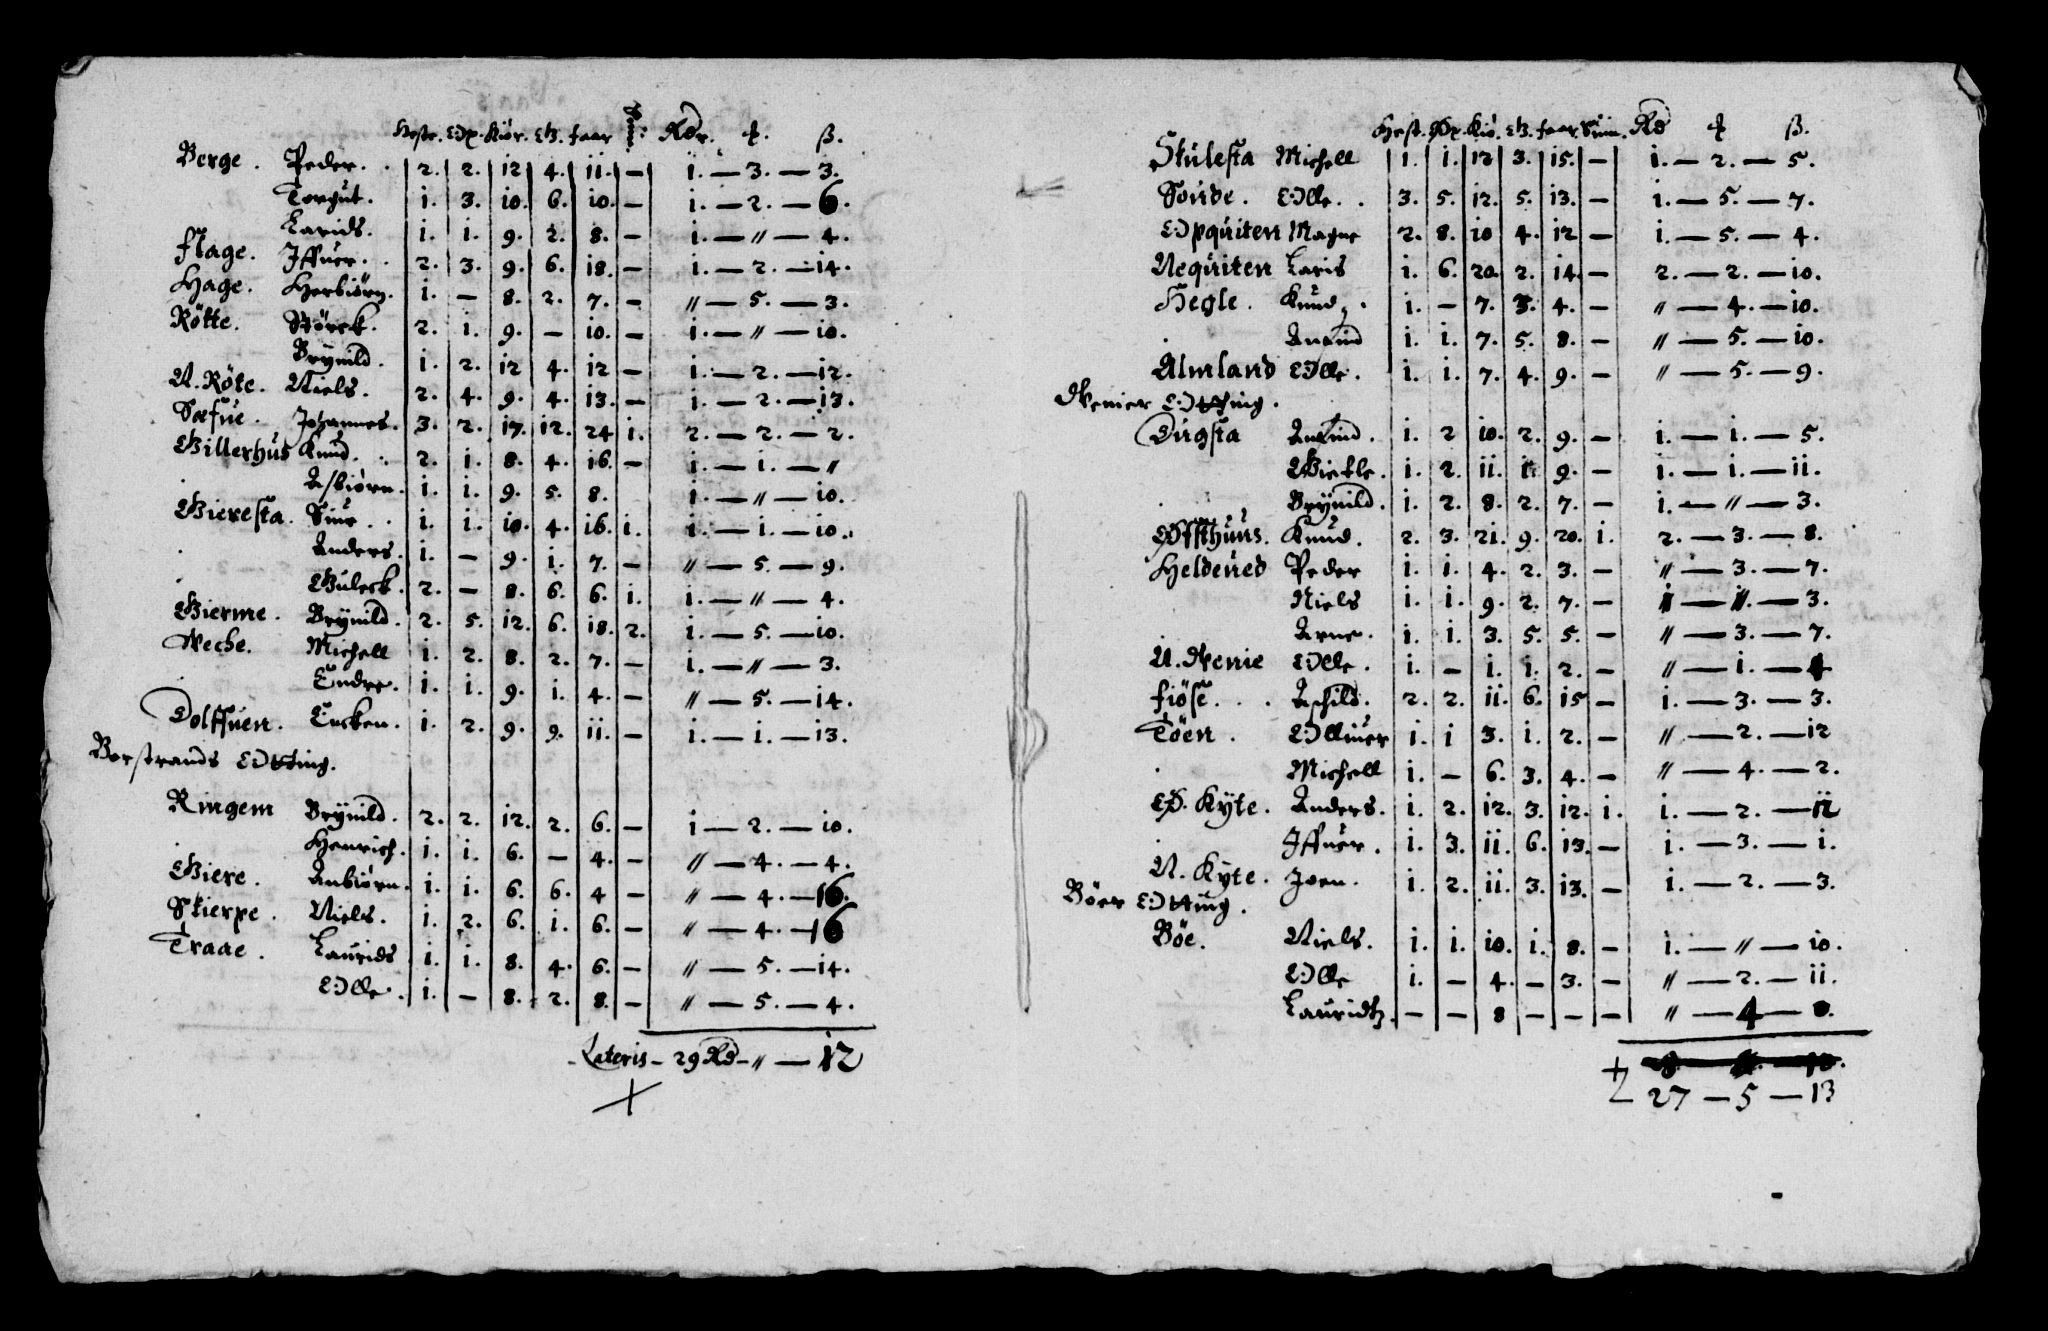 Heste. Oxe. Kiør. Gb. faar Suin. Rdr. ꝶ. ß.
Berge. Peder. 2. 2. 12 4. 11. — 1. — 3. — 3.
Torgut. 1. 3. 10. 6. 10. — 1. — 2. — 6.
Larids. 1. 1. 9. 2. 8. — 1. — 〃 — 4.
Flage. Iffuer. 2. 3. 9. 6. 18. — 1. — 2. — 14.
Hage. Herbiörn. 1. — 8. 2. 7. — 〃 — 5. — 3.
Rötte. Störck. 2. 1. 9. — 10. — 1. — 〃 — 10.
Brynild. 1. 2. 12 4. 12 — 1. — 2. — 12.
N. Röte. Niels. 2. 4. 9. 4. 13. — 1. — 2. — 13.
Sæfue. Johannes. 3. 2. 17. 12. 24 1. 2. — 2. — 2.
Gillerhus Knud. 2. 1. 8. 4. 16. — 1. — 1. — 〃
Asbiörn. 1. 1. 9. 5. 8. 1. — 〃 — 10.
Gieresta. Siur. 1. 1. 10. 4. 16. 1. 1. — 1. — 10.
Anders. 1. — 9. 1. 7. — 〃 — 5. — 9.
Guleck. 2. — 8. 6. 6. 1. 1. — 〃 — 4.
Gierme. Brynild. 2. 5. 12. 6. 18. 2. 1. — 5. — 10.
Weche. Michell 1. 2. 8. 2. 7. — 1. — 〃 — 3.
Endre. 1. 1. 9. 1. 4. — 〃 — 5. — 14.
Dolffuen. Encken. 1. 2. 9. 9. 11. — 1. — 1. — 13.
Borstrands Otting.
Ringem Brynild. 2. 2. 12. 2. 6. — 1 — 2. — 10.
Henrich. 1. 1. 6. — 4. — 〃 — 4. — 4.
Giere. Anbiörn. 1. 1. 6. 6. 4 — 〃 — 4. — 16.
Skierpe. Niels. 1. 2. 6. 1. 6. — 〃 — 4. — 16
Traae. Laurids 1. 1. 8. 4. 6. — 〃 — 5. — 14.
Olle. 1. — 8. 2. 8. — 〃 — 5. — 4.
Lateris — 29 Rd — 〃 — 12
Hest. Ox. Kiö. Gb. faar Suin. Rd ꝶ ß.
Skulesta Michell 1. 1. 12 3. 15. — 1. — 2. — 5.
Sonde. Olle. 3. 5. 12. 5. 13. — 1. — 5. — 7.
Opquiten Magne 2. 8. 10 4. 12 — 1. — 5. — 4.
Nequiten Laris 1. 6. 20. 2. 14. — 2. — 2. — 10.
Hegle. Knud 1. — 7. 3. 4. — 〃 — 4. — 10.
Anuind 1. 1. 7. 5. 8. — 〃 — 5. — 10.
Almland Olle. 1. 1. 7. 4. 9. — 〃 — 5. — 9.
Wenier Otting.
Dugsta Anuind. 1. 2 10. 2. 9. — 1. — 1. — 5.
Gietle. 1. 2. 11. 1. 9. — 1. — 1. — 11.
Brynild. 1. 2. 8. 2. 7. — 1. — 〃 — 3.
Gisthuus. Knud. 2. 3. 21. 9. 20. 1. 2. — 3. — 8.
Heldened Peder 1. 1. 4. 2. 3. — 〃 — 3. — 7.
Niels 1. 1. 9. 2. 7. — — 3.
Arne. 1. 1. 3. 5. 5. — 〃 — 3. — 7.
U. Wenie Olle. 1. — 1. 1. 2. — 〃 — 1. — 4
Fiöse. Aschild. 2. 2. 11. 6. 15 — 1. — 3. — 3.
Töen. Olliuer 1. 1 3. 1. 2. — 〃 — 2. — 12
Michell 1. — 6. 3. 4. — 〃 — 4. — 2.
Ø. Kyte. Anders. 1. 2. 12. 3. 12. 1. 1. — 2. — 12
Iffuer. 1. 3. 11. 6. 13. — 1. — 3. — 1.
N. Kyte. Joen. 1. 2. 11. 3. 13. — 1. — 2. — 3.
Böer Otting.
Böe. Niels. 1. 1. 10. 1. 8. — 1. — 〃 — 10.
Olle 1. — 4. — 3. — 〃 — 2. — 11.
Lauridtz. — — 8 — — — 〃 — 4 — 8.
27 — 5 — 13